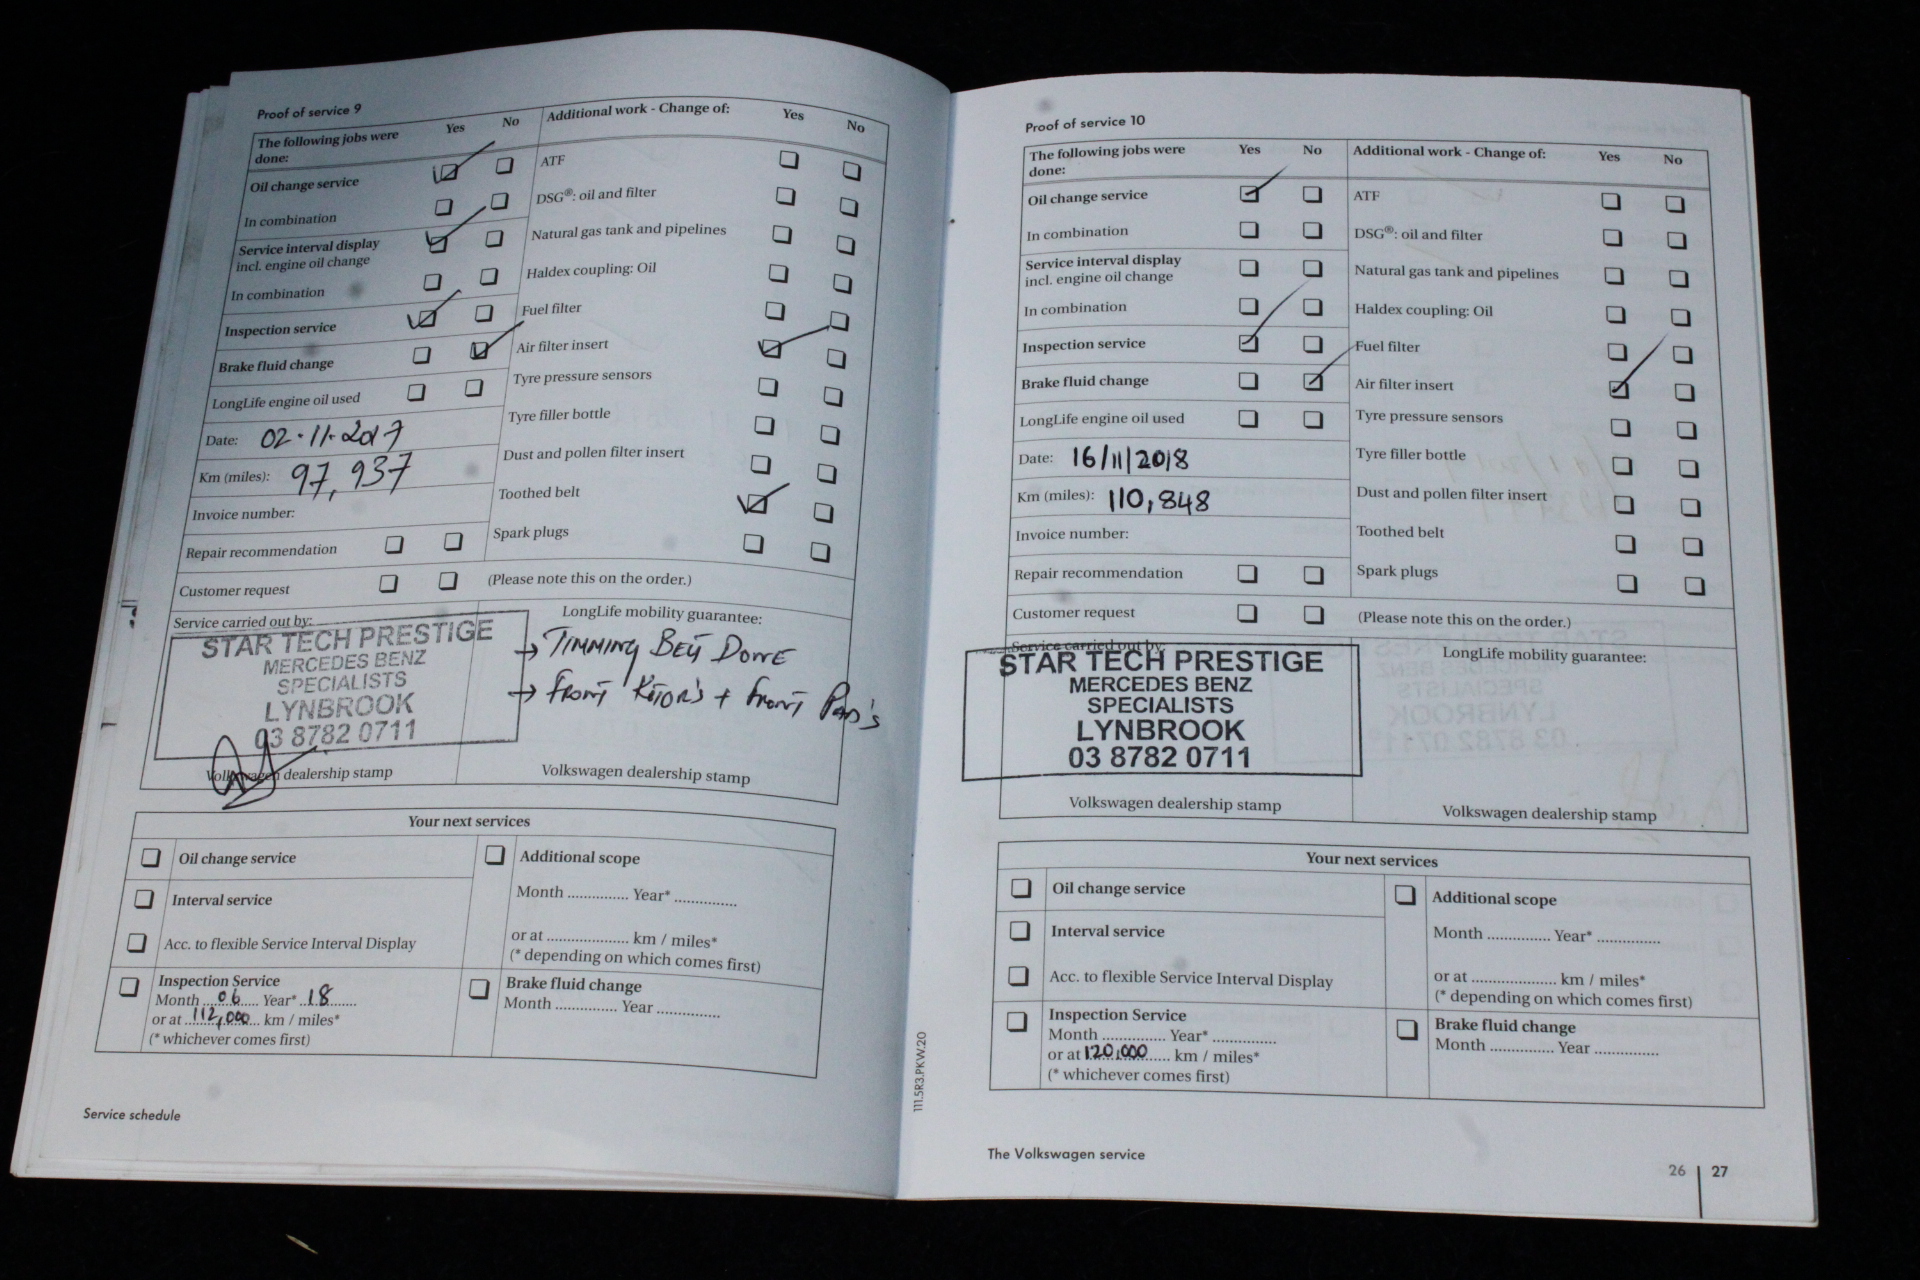 Proof of service 9
The following jobs were done: Yes No
Additional work - Change of: Yes No
Oil change service
In combination
Service interval display
incl. engine oil change
In combination
Inspection service
Brake fluid change
LongLife engine oil used
Date: 02·11·2017
Km (miles): 97,937
Invoice number:
Repair recommendation
Customer request
ATF
DSG®: oil and filter
Natural gas tank and pipelines
Haldex coupling: Oil
Fuel filter
Air filter insert
Tyre pressure sensors
Tyre filler bottle
Dust and pollen filter insert
Toothed belt
Spark plugs
(Please note this on the order.)
Service carried out by:
STAR TECH PRESTIGE
MERCEDES BENZ
SPECIALISTS
LYNBROOK
03 8782 0711
Volkswagen dealership stamp
LongLife mobility guarantee:
→ TIMMING BELT DONE
→ FRONT ROTOR'S + FRONT PAD'S
Volkswagen dealership stamp
Your next services
Oil change service
Interval service
Acc. to flexible Service Interval Display
Inspection Service
Month ....06.... Year* ..18......
or at ..112,000... km / miles*
(* whichever comes first)
Additional scope
Month ............... Year* ...............
or at .................... km / miles*
(* depending on which comes first)
Brake fluid change
Month ............... Year ...............
Service schedule
Proof of service 10
The following jobs were done: Yes No
Additional work - Change of: Yes No
Oil change service
In combination
Service interval display
incl. engine oil change
In combination
Inspection service
Brake fluid change
LongLife engine oil used
Date: 16/11/2018
Km (miles): 110,848
Invoice number:
Repair recommendation
Customer request
ATF
DSG®: oil and filter
Natural gas tank and pipelines
Haldex coupling: Oil
Fuel filter
Air filter insert
Tyre pressure sensors
Tyre filler bottle
Dust and pollen filter insert
Toothed belt
Spark plugs
(Please note this on the order.)
Service carried out by:
STAR TECH PRESTIGE
MERCEDES BENZ
SPECIALISTS
LYNBROOK
03 8782 0711
Volkswagen dealership stamp
LongLife mobility guarantee:
Volkswagen dealership stamp
Your next services
Oil change service
Interval service
Acc. to flexible Service Interval Display
Inspection Service
Month ............... Year* ...............
or at 120,000..... km / miles*
(* whichever comes first)
Additional scope
Month ............... Year* ...............
or at .................... km / miles*
(* depending on which comes first)
Brake fluid change
Month ............... Year ...............
111.5R3.PKW.20
The Volkswagen service
26 | 27